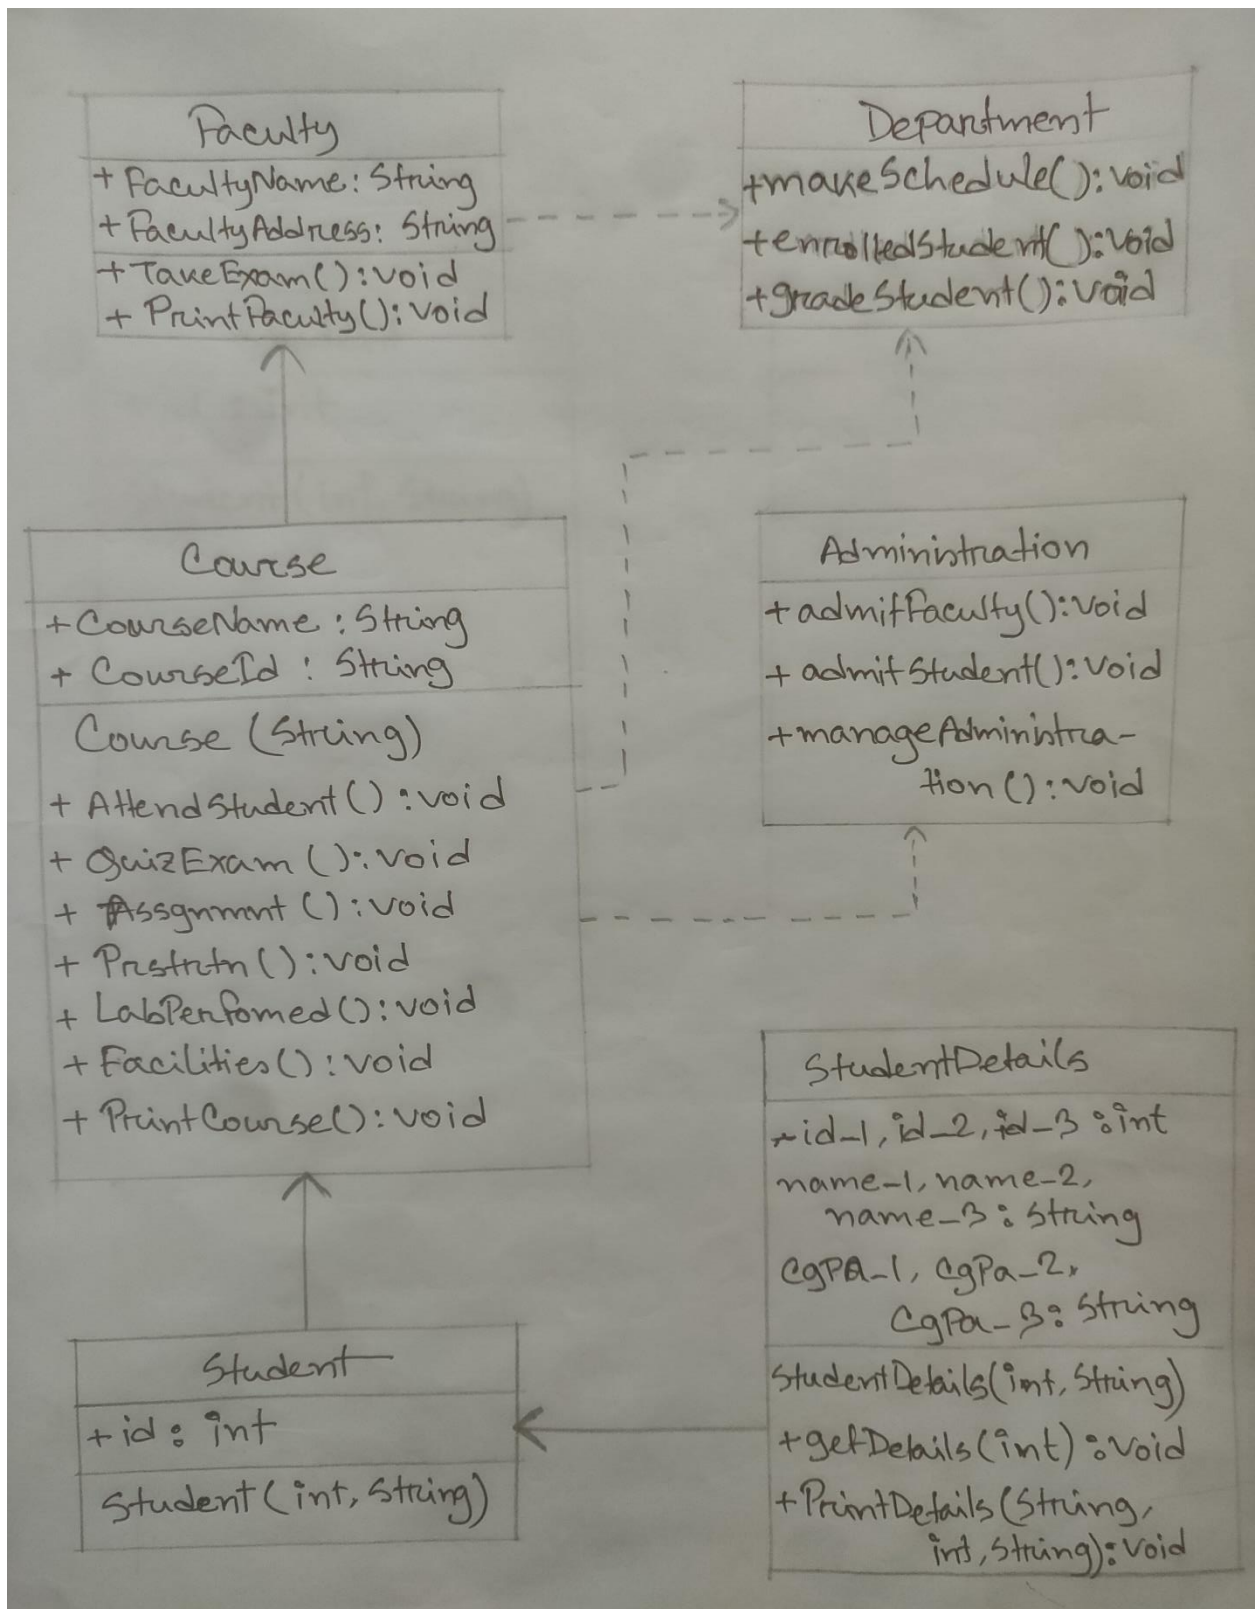 Faculty
+ FacultyName: String
+ FacultyAddress: String
+ TakeExam(): void
+ PrintFaculty(): void
Department
+makeSchedule(): void
+enrolledStudent(): void
+gradeStudent(): void
Course
+ CourseName : String
+ CourseId : String
Course (String)
+ AttendStudent() : void
+ QuizExam (): void
+ Assgnmnt (): void
+ Prstntn(): void
+ LabPerfomed(): void
+ Facilities(): void
+ PrintCourse(): void
Administration
+ admitFaculty(): void
+ admitStudent(): void
+manageAdministra-
tion(): void
StudentDetails
+id_1, id_2, id_3 : int
name_1, name_2,
name_3 : String
CgPA_1, CgPa_2,
CgPa_3 : String
StudentDetails(int, String)
+getDetails(int) : void
+PrintDetails(String,
int, String): void
Student
+id : int
Student(int, String)